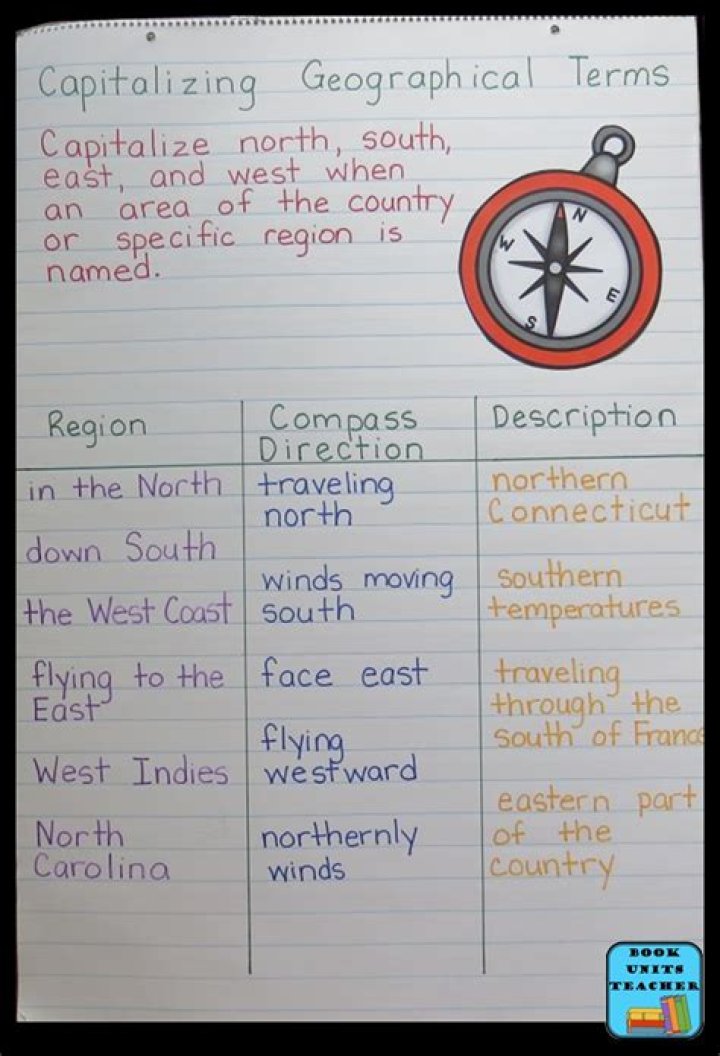 Capitalizing Geographical Terms
Capitalize north, south,
east, and west when
an area of the country
or specific region is
named.
N
W
E
S
Region
in the North
down South
the West Coast
flying to the
East
West Indies
North
Carolina
Compass
Direction
traveling
north
winds moving
south
face east
flying
westward
northernly
winds
Description
northern
Connecticut
southern
temperatures
traveling
through the
south of France
eastern part
of the
country
BOOK
UNITS
TEACHER